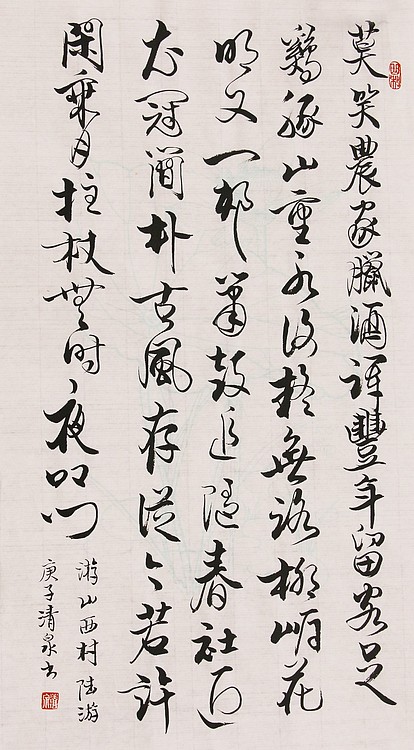 莫笑農家臘酒渾豐年留客足
鷄豚山重水復疑無路柳暗花
明又一邨簫鼓追隨春社近
衣冠簡朴古風存從今若許
閑乘月拄杖無時夜叩門
游山西村 陸游
庚子清泉書